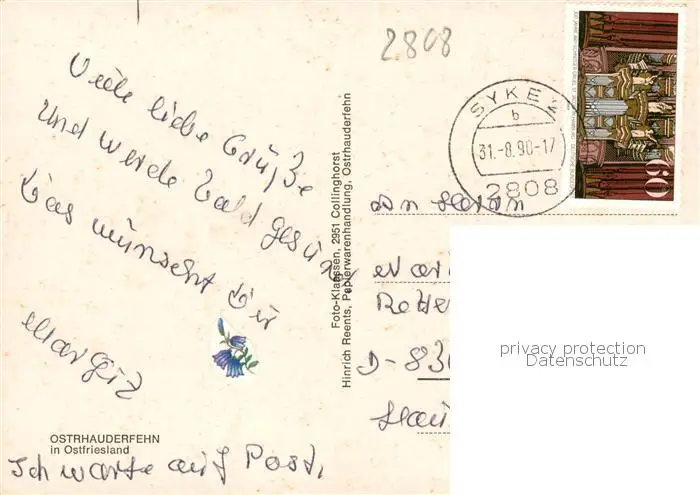 2808
Viele liebe Grüße
und werde bald gesund
Das wünscht Dir
Margit
OSTRHAUDERFEHN
in Ostfriesland
Ich warte auf Post.
Foto-Klaassen, 2951 Collinghorst
Hinrich Reents, Papierwarenhandlung, Ostrhauderfehn
SYKE 2
b
31.-8.90-17
2808
60
An Herrn
D-83
privacy protection
Datenschutz